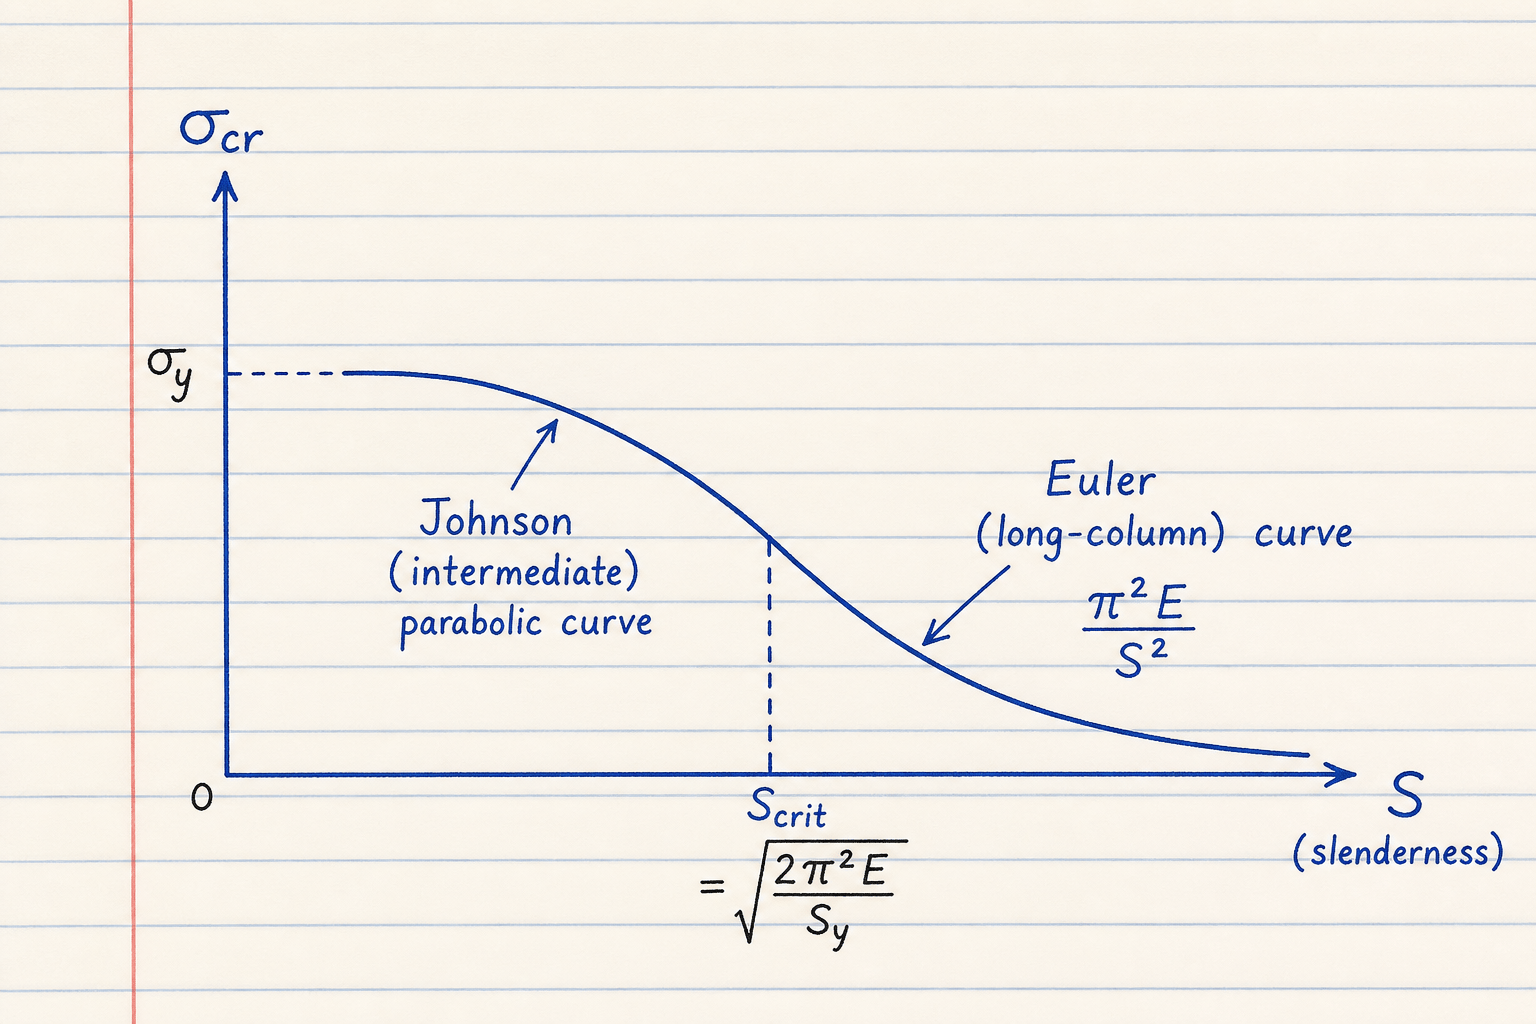 σcr
σy
Johnson
(intermediate)
parabolic curve
Euler
(long-column) curve
π² E
S²
0
Scrit
S
(slenderness)
= √
2π² E
Sy